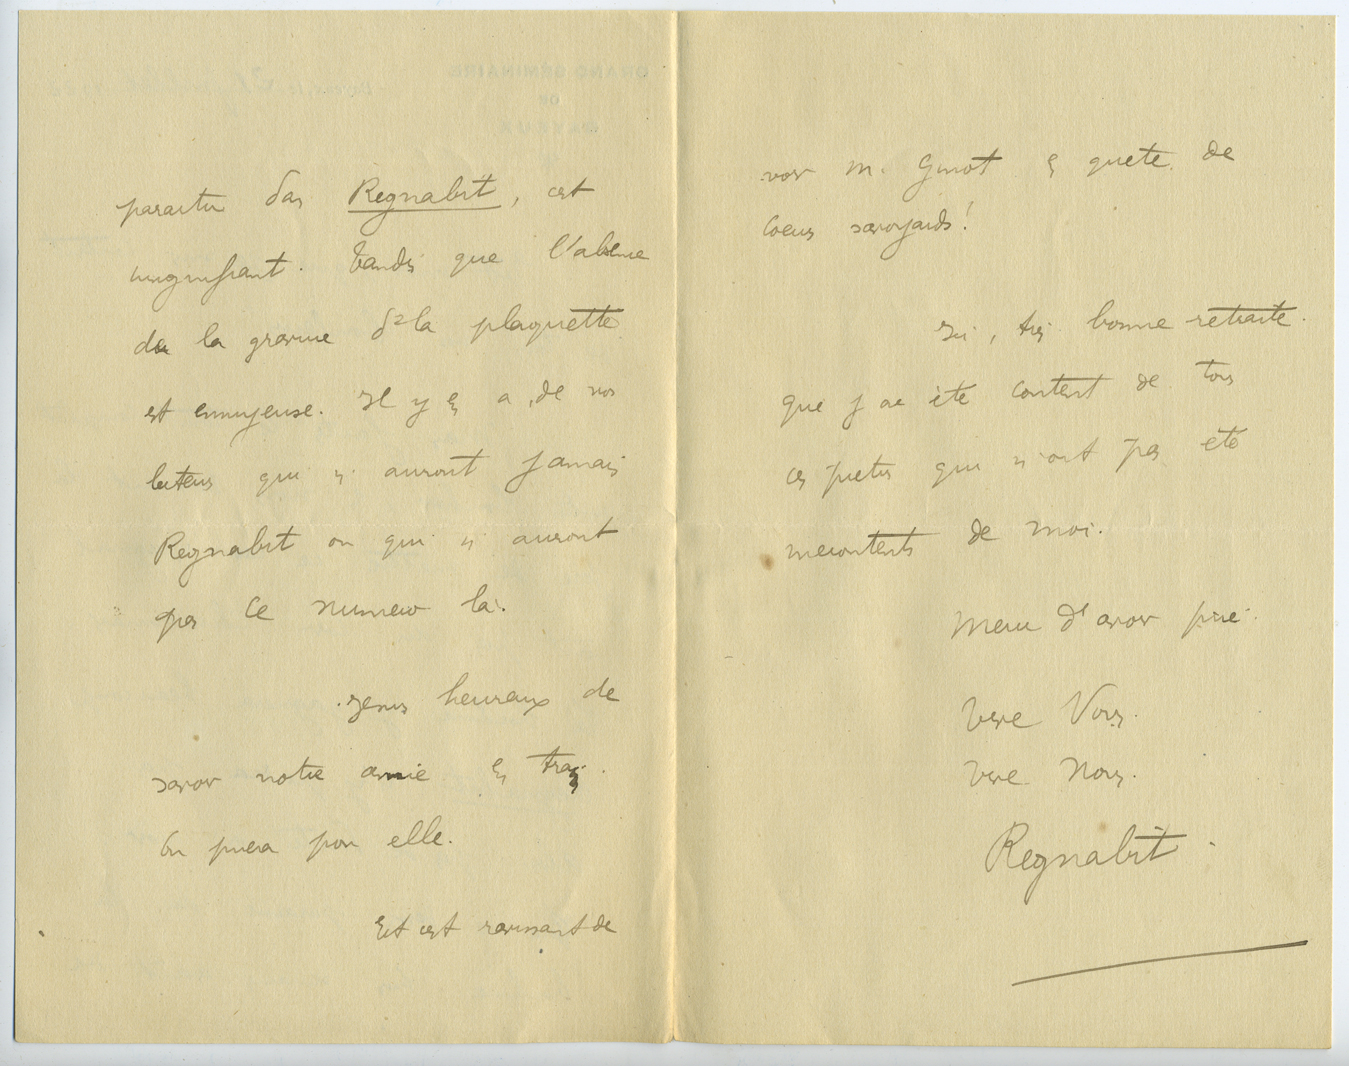 paraitre dans Regnabit, est
insignifiant. Tandis que l'absence
de la gravure de la plaquette
est ennuyeuse. Il y en a, de nos
lecteurs qui n'auront jamais
Regnabit ou qui n'auront
pas ce numero là.
Jesus heureux de
savoir notre amie en train.
On priera pour elle.
Et c'est ravissant de
voir M. Guiot en quete de
coeurs savoyards!
Ici, très bonne retraite.
que j'ai été content de tous
ces pretres qui n'ont pas été
mecontents de moi.
Merci d'avoir prié.
Vere Vous.
Vere Nous.
Regnabit.
GRAND SÉMINAIRE
DE
BAYEUX
Bayeux, le